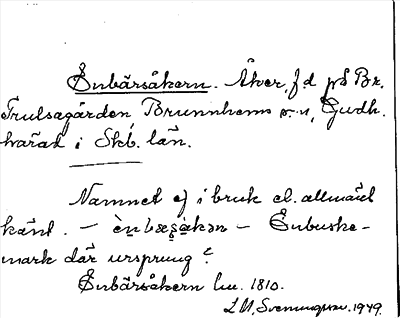 Enbärsåkern. Åker, f.d på Br.
Trulsagården Brunnhems s-n, Gudh.
härad i Skb. län.
Namnet ej i bruk el. allmänt
känt. – – Enbuske-
mark där ursprung?
Enbärsåkern lm. 1810.
1949.